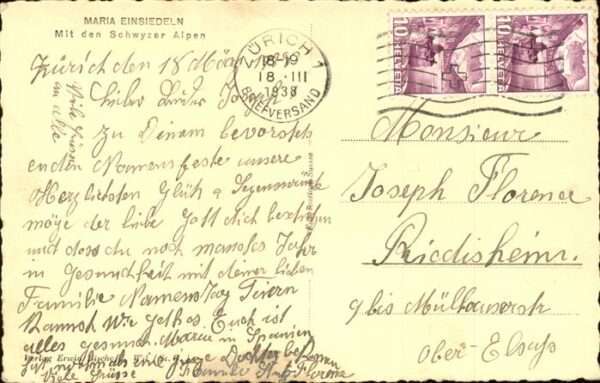 MARIA EINSIEDELN
Mit den Schwyzer Alpen
Zürich den 18 März
ZÜRICH 1
18-19
18. III
1938
BRIEFVERSAND
10 HELVETIA
10 HELVETIA
Viele Grüsse
an Alle
Lieber Bruder Joseph
Zu Deinem bevorsteh
enden Namensfeste unsere
Herzlichsten Glück & Segenswünsche
möge der liebe Gott dich beschützen
und dass du noch manches Jahr
in Gesundheit mit deiner lieben
Familie Namenstag Feiern
kannst Wie geht es Euch ist
alles gesund Maria in Spanien
hat nochmals eine Tochter bekommen
Viele Grüsse Familie Florence
Monsieur
Joseph Florence
Riedisheim.
bis Mülhausen
Ober-Elsass